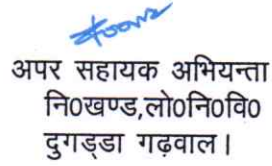 अपर सहायक अभियन्ता
नि0खण्ड,लो0नि0वि0
दुगड्डा गढ़वाल।